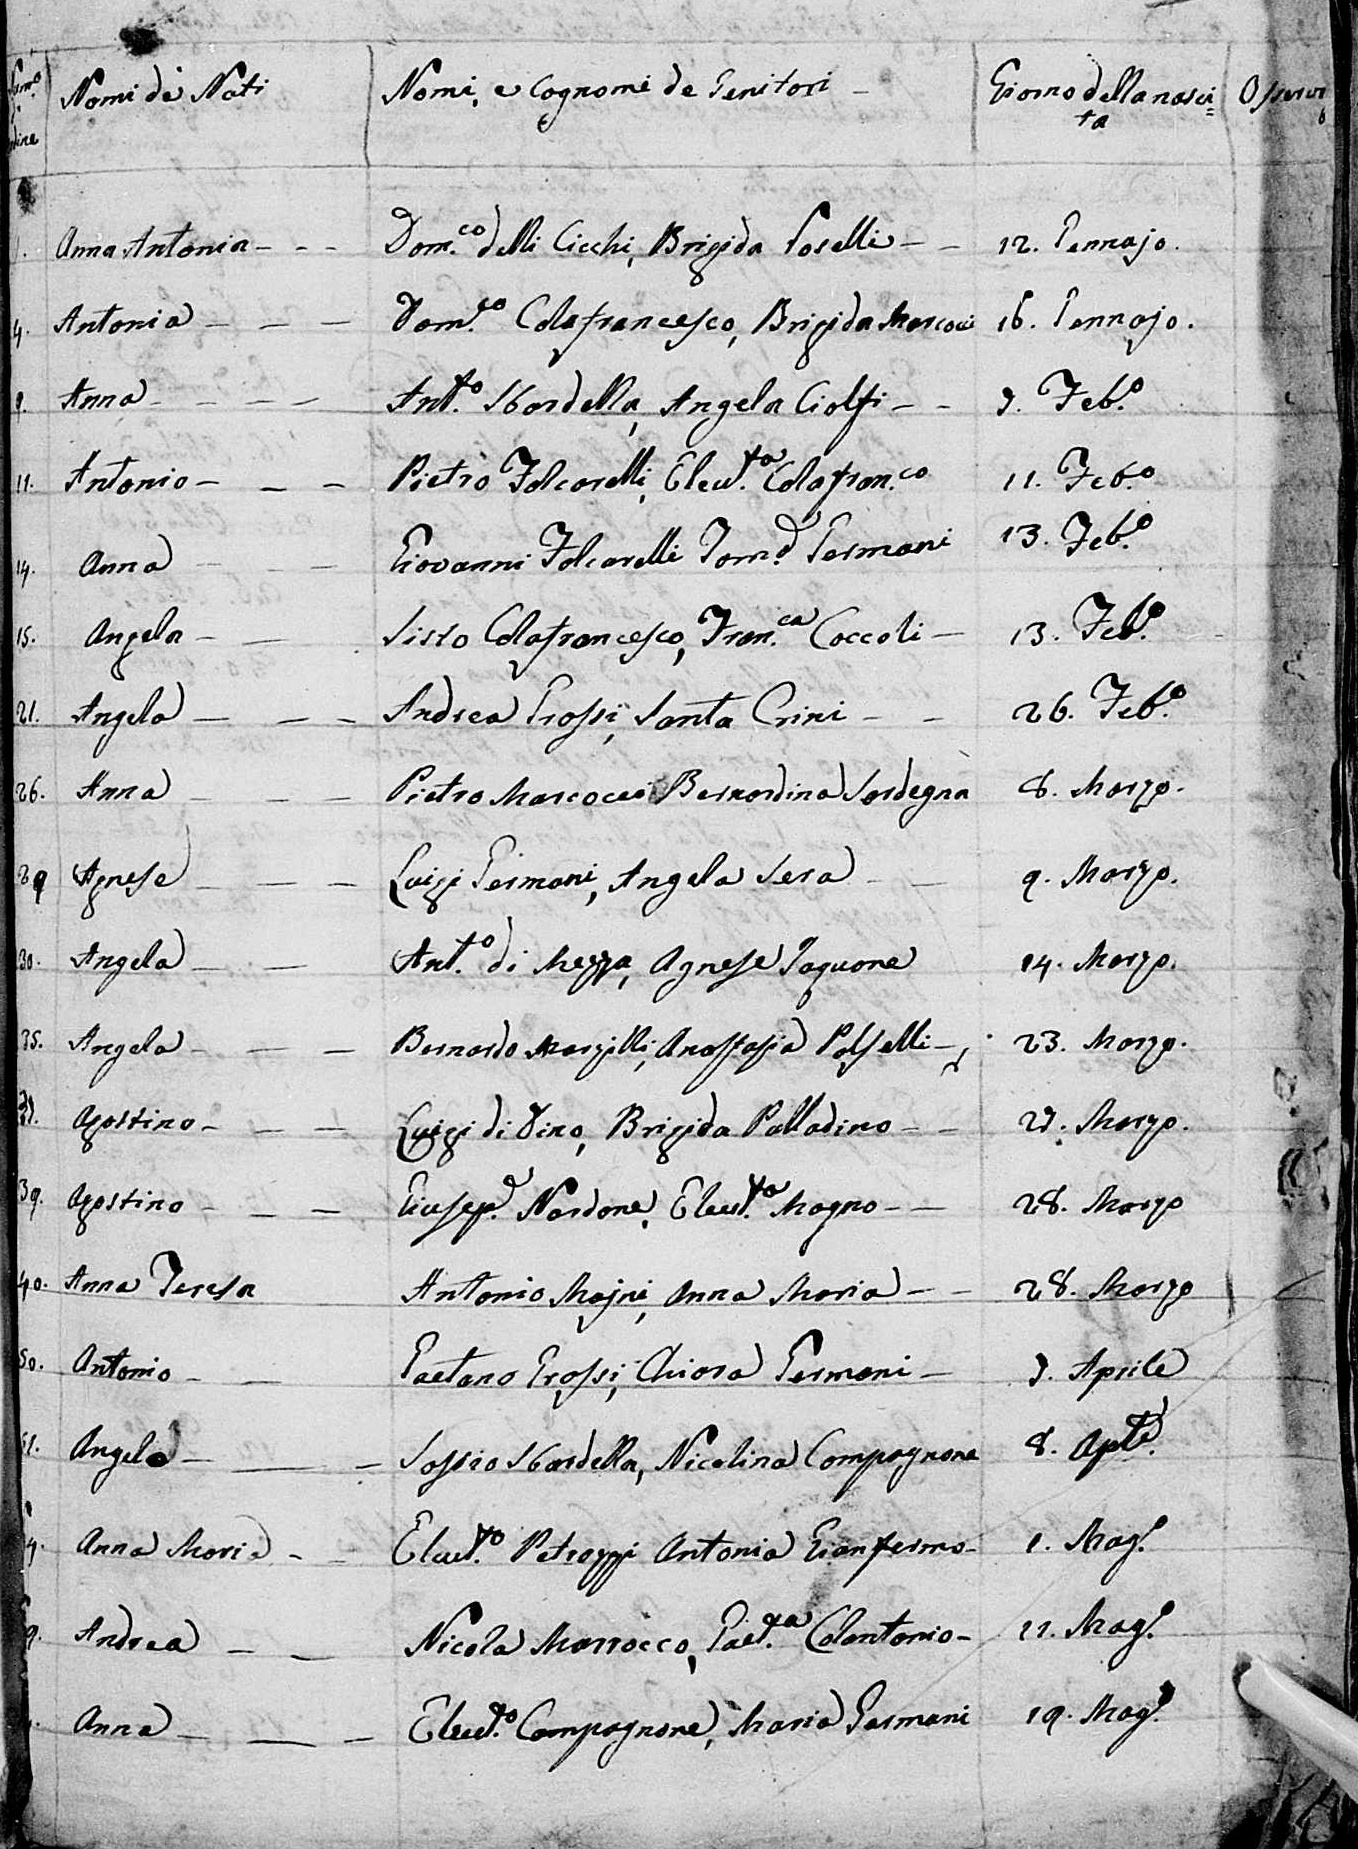 Num.º
Nomi de' Nati
Nomi, e Cognomi de Genitori -
Giorno della nasci=
ta
Osserv
dine
1. Anna Antonia - - - Dom.co delli Cicchi, Brigida Poselli - - 12. Gennajo.
4. Antonia - - - Dom.co Colafrancesco, Brigida Marcocci 16. Gennajo.
9. Anna - - - - Ant.to Sbardella, Angela Ciolfi - - 9. Feb.o
11. Antonio - - - Pietro Folcarelli, Eleut.ta Colafran.co 11. Feb.o
14. Anna - - Giovanni Folcarelli Dom.a Germani 13. Feb.o
15. Angela - - Sisto Colafrancesco, Fran.ca Coccoli - 13. Feb.o
21. Angela - - - Andrea Grossi, Santa Crini - - 26. Feb.o
26. Anna - - - Pietro Marcocci Bernardina Sardegna 8. Marzo.
29 Agnese - - - Luigi Germani, Angela Sera - - 9. Marzo.
30. Angela - - Ant.to di Mezza, Agnese Iaguone 14. Marzo.
35. Angela - - - Bernardo Marzilli, Anastasia Polselli - 23. Marzo.
Agostino - - - Luigi di Vino, Brigida Palladino - - 27. Marzo.
39. Agostino - - - Giusep.e Nardone, Eleut.ta Magno - - 28. Marzo
40. Anna Teresa Antonio Majni, Anna Maria - - 28. Marzo
50. Antonio - - Gaetano Grossi, Chiara Germani - 7. Aprile
51. Angela - - - Sossio Sbardella, Nicolina Compagnone 8. Aple.
Anna Maria - - Eleut.to Petrozzi Antonia Gianfermo - 1. Mag.o
9. Andrea - - Nicola Marrocco, Gaet.ta Colantonio - 11. Mag.o
Anna - - - Eleut.to Compagnone, Maria Germani 19. Mag.o